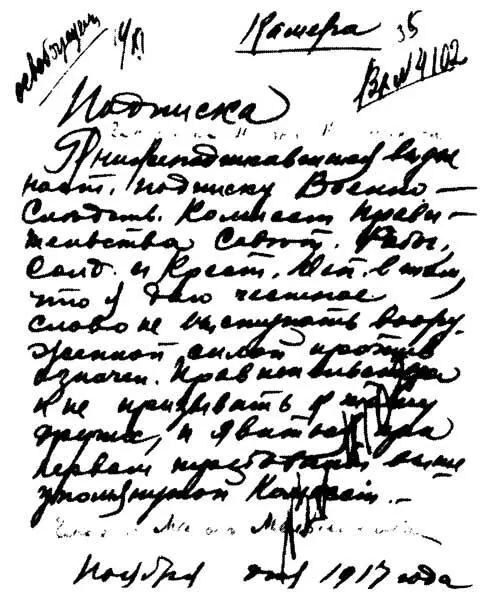 освобожден 14/XI Камера 35
Вх № 4102
Подписка
Я нижеподписавшийся выдаю
наст. подписку Военно-
Следств. Комиссии прави-
тельства Совет. Рабоч.,
Солд. и Крест. Деп. в том,
что я даю честное
слово не выступать воору-
женной силой против
означен. Правительства
и не призывать к тому
других, и явиться при
первом требовании выше
упомянутой Комиссии.
Ноября дня 1917 года